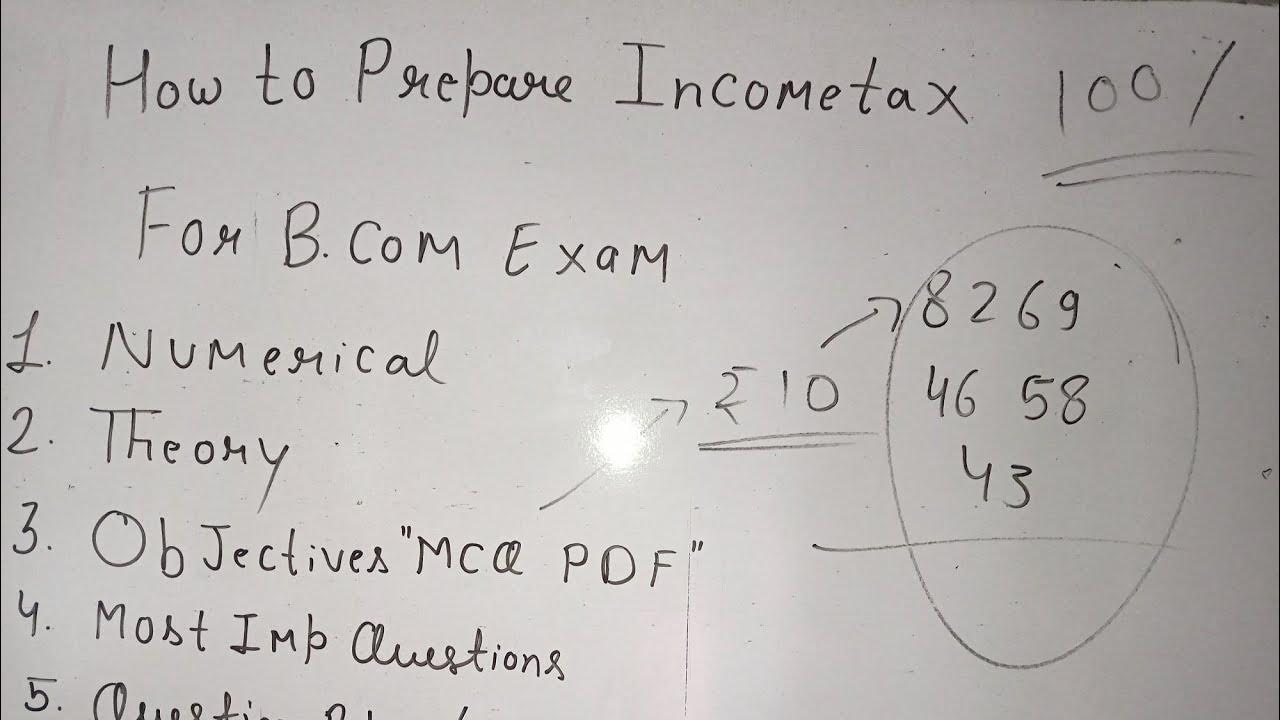 How to Prepare Incometax 100%
For B.Com Exam
1. Numerical
2. Theory
3. Objectives "MCQ PDF"
4. Most Imp Questions
5. Question
₹10
8269
46 58
43